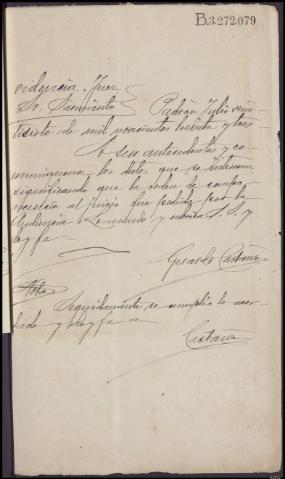 B.3.272.079
videncia. Juez
Sr. Sarmiento Padrón, Julio vein-
tisiete de mil novecientos treinta y tres
A sus antecedentes y co-
muníquense los datos que se interesan
significando que la orden de compa-
recencia al juicio fue pedida por la
Audiencia. Lo mando y rubrica S. S. y
doy fe.
Gerardo Castaño
Nota
Seguidamente se cumplió lo acor-
dado y doy fe
Castaño